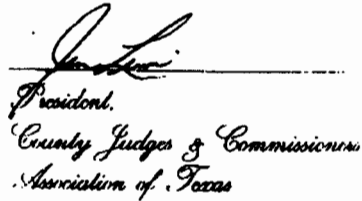 President,
County Judges & Commissioners
Association of Texas